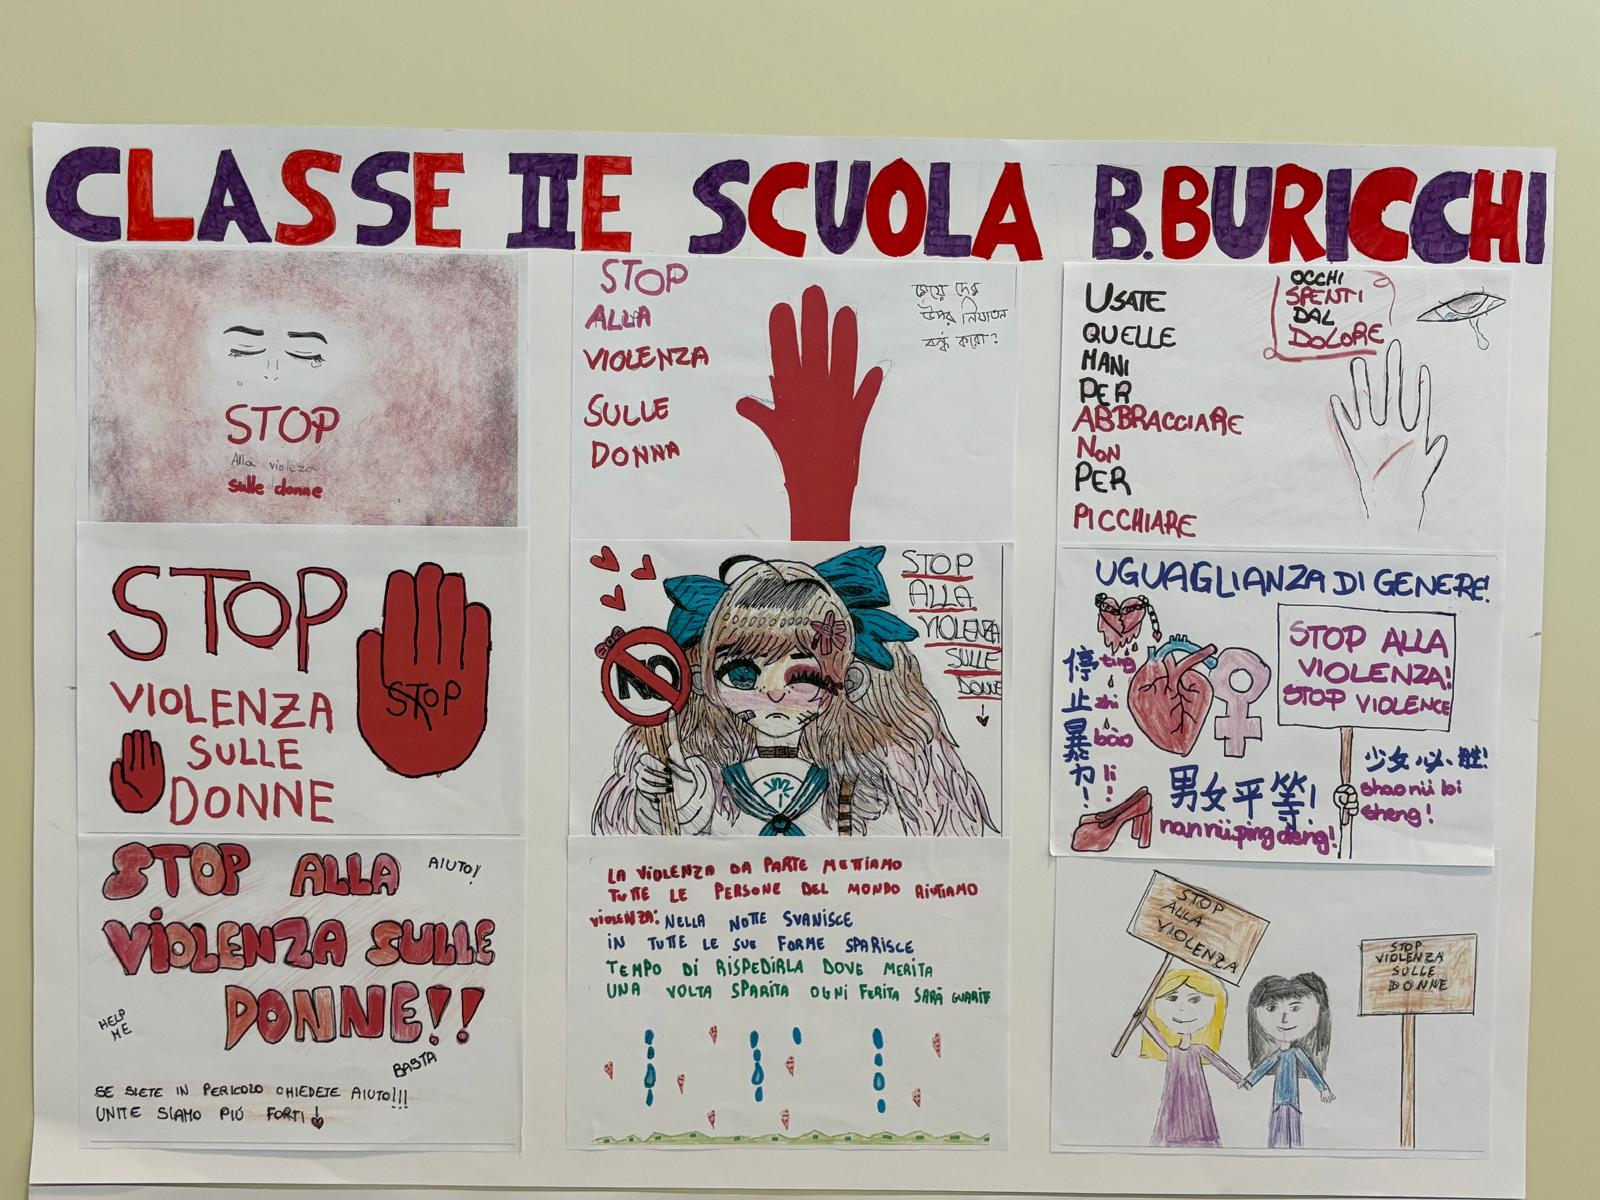 CLASSE IIE SCUOLA B.BURICCHI
STOP
Alla violeza
sulle donne
STOP
ALLA
VIOLENZA
SULLE
DONNA
মেয়ে দের
উপর নিযাতন
বন্ধ করো?
USATE
QUELLE
MANI
PER
ABBRACCIARE
NON
PER
PICCHIARE
OCCHI
SPENTI
DAL
DOLORE
STOP
VIOLENZA
SULLE
DONNE
STOP
NO
STOP
ALLA
VIOLENZA
SULLE
DONNE
UGUAGLIANZA DI GENERE!
停 ting
止 zhi
暴 bào
力 li
! !
STOP ALLA
VIOLENZA!
STOP VIOLENCE
男女平等!
nan nü ping deng!
少女必胜!
shao nü bi
sheng!
STOP ALLA
VIOLENZA SULLE
DONNE!!
AIUTO!
HELP
ME
BASTA
SE SIETE IN PERICOLO CHIEDETE AIUTO!!!
UNITE SIAMO PIÚ FORTI!
LA VIOLENZA DA PARTE METTIAMO
TUTTE LE PERSONE DEL MONDO AIUTIAMO
VIOLENZA: NELLA NOTTE SVANISCE
IN TUTTE LE SUE FORME SPARISCE
TEMPO DI RISPEDIRLA DOVE MERITA
UNA VOLTA SPARITA OGNI FERITA SARÁ GUARITA
STOP
ALLA
VIOLENZA
STOP
VIOLENZA
SULLE
DONNE